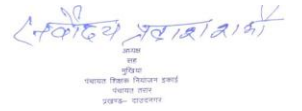 प्रकाश शर्मा
अध्यक्ष
सह
मुखिया
पंचायत शिक्षक नियोजन इकाई
पंचायत तरार
प्रखण्ड- दाउदनगर